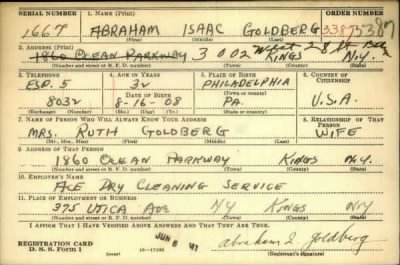 SERIAL NUMBER
1. NAME (Print)
1667
ABRAHAM ISAAC GOLDBERG
(First) (Middle) (Last)
2. ADDRESS (Print)
1860 OCEAN PARKWAY 3002 West 28 KINGS N.Y.
(Number and street or R. F. D. number) (Town) (County) (State)
3. TELEPHONE
4. AGE IN YEARS
5. PLACE OF BIRTH
6. COUNTRY OF CITIZENSHIP
ESP. 5
32
PHILADELPHIA
(Town or county)
DATE OF BIRTH
8032
8-16-08
PA.
U.S.A.
(Exchange) (Number)
(Mo.) (Day) (Yr.)
(State or country)
7. NAME OF PERSON WHO WILL ALWAYS KNOW YOUR ADDRESS
8. RELATIONSHIP OF THAT PERSON
MRS. RUTH GOLDBERG
WIFE
(Mr., Mrs., Miss) (First) (Middle) (Last)
9. ADDRESS OF THAT PERSON
1860 OCEAN PARKWAY KINGS N.Y.
(Number and street or R. F. D. number) (Town) (County) (State)
10. EMPLOYER'S NAME
ACE DRY CLEANING SERVICE
11. PLACE OF EMPLOYMENT OR BUSINESS
375 UTICA AVE NY KINGS NY
(Number and street or R. F. D. number) (Town) (County) (State)
I AFFIRM THAT I HAVE VERIFIED ABOVE ANSWERS AND THAT THEY ARE TRUE.
REGISTRATION CARD
D. S. S. FORM 1
(over)
JUN 6 41
Abraham I. Goldberg
(Registrant's signature)